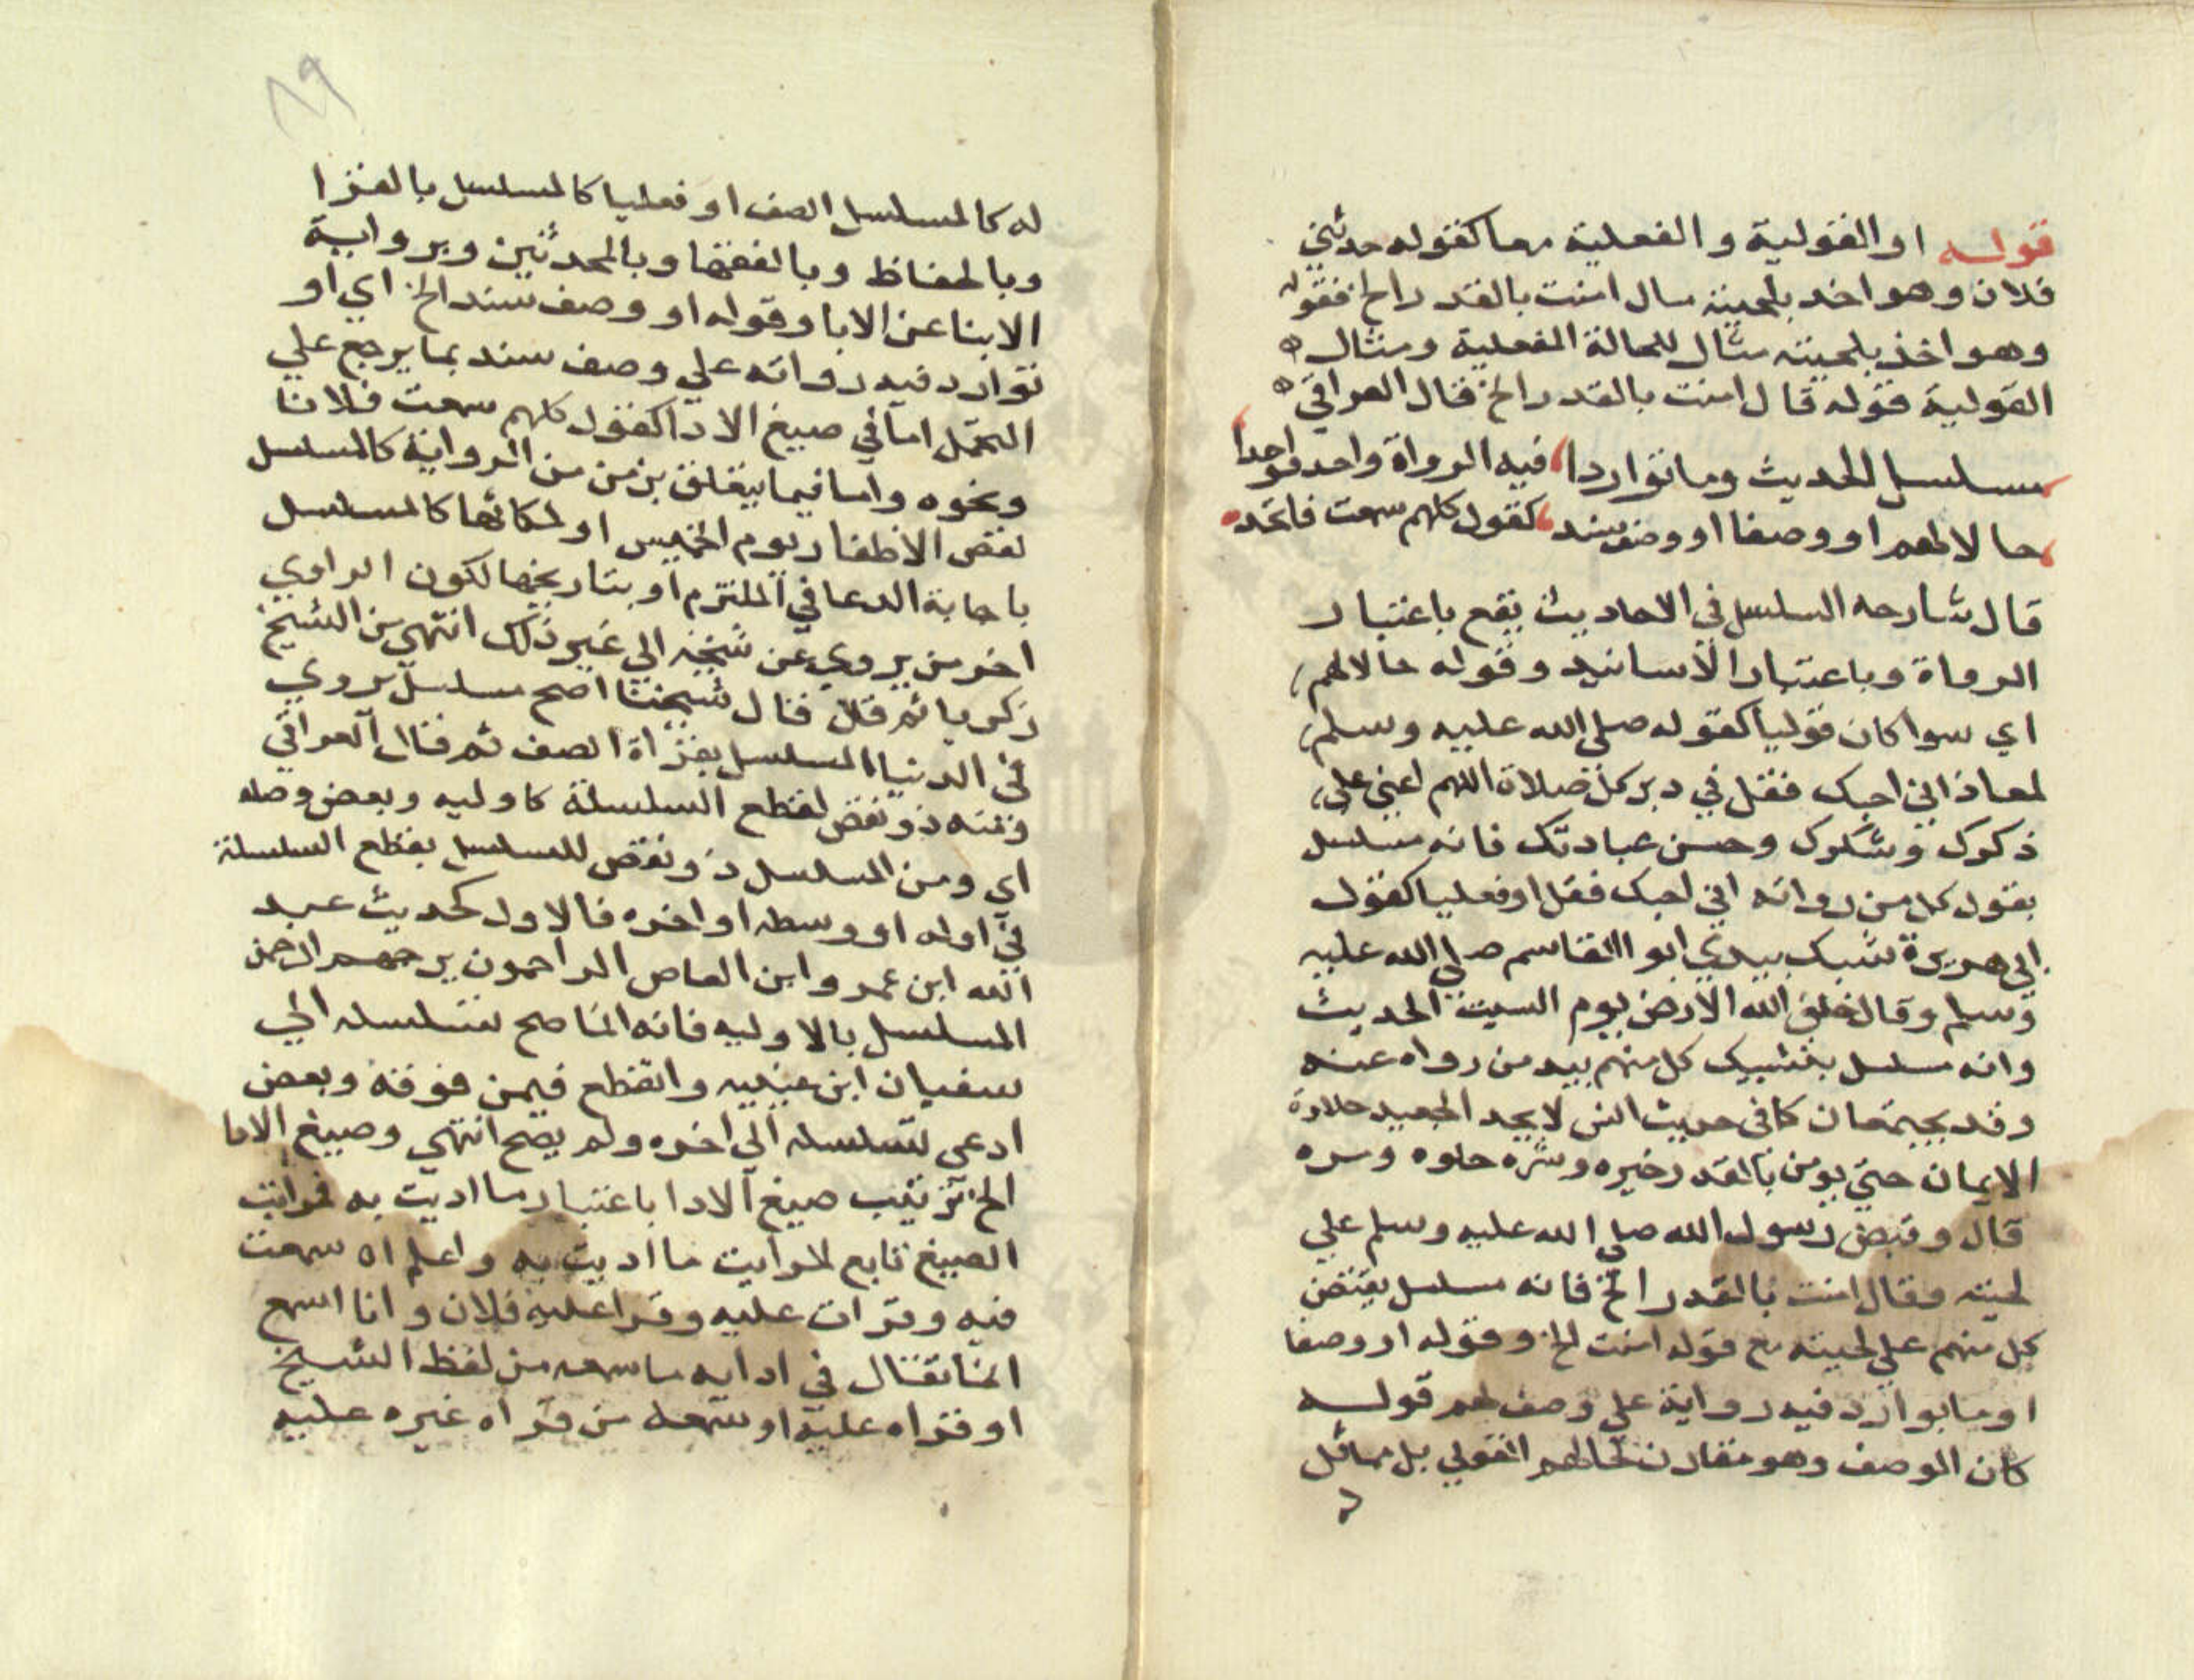 قوله او القولية والفعلية معا كقوله حدثني
فلان وهو اخد بلحيته سال امنت بالقدر الخ فقوله
وهو اخذ بلحيته مثال للحالة الفعلية ومثال
القولية قوله قال امنت بالقدر الخ قال العراقي
مسلسل الحديث وما تواردا فيه الرواة واحد فواحدا
حالا لهم او وصفا او وصف سند كقول كلهم سمعت فاتحد
قال شارحه السلسل في الاحاديث يقع باعتبار
الرواة وباعتبار الاسانيد وقوله حالا لهم
اي سوا كان قوليا كقوله صلى الله عليه وسلم
لمعاذ اني احبك فقل في دبر كل صلاة اللهم اعني على
ذكرك وشكرك وحسن عبادتك فانه مسلسل
بقول كل من رواته اني احبك فقل او فعليا كقول
ابي هريرة شبك بيدي ابو القاسم صلى الله عليه
وسلم وقال خلق الله الارض يوم السبت الحديث
وانه مسلسل بتشبيك كل منهم بيد من رواه عنه
وقد يجتمعان كما في حديث انس لا يجد العبد حلاوة
الايمان حتى يومن بالقدر خيره وشره حلوه ومره
قال وقبض رسول الله صلى الله عليه وسلم على
لحيته وقال امنت بالقدر الخ فانه مسلسل بقبض
كل منهم على لحيته مع قوله امنت الخ وقوله او وصفا
او ما توارد فيه رواية على وصف لهم قوله
كان الوصف وهو مقارن لحالهم القولي بل مماثل
له كالمسلسل الصف او فعليا كالمسلسل بالقرا
وبالحفاظ وبالفقها وبالمحدثين وبرواية
الابنا عن الابا وقوله او وصف سند الخ اي او
توارد فيه رواته على وصف سند بما يرجع على
التحمل اما في صيغ الادا كقول كلهم سمعت فلانا
ونحوه واما فيما يتعلق بزمن من الرواية كالمسلسل
بقص الاظفار يوم الخميس او لمكانها كالمسلسل
باجابة الدعا في الملتزم او بتاريخها لكون الراوي
اخر من يروي عن شيخه الي غير ذلك انتهى من الشيخ
زكريا ثم قال قال شيخنا اصح مسلسل يروي
في الدنيا المسلسل بقراة الصف ثم قال العراقي
ومنه ذو نقص لقطع السلسلة كاوليه وبعض وصله
اي ومن المسلسل ذو نقص للسلسل بقطع السلسلة
في اوله او وسطه او اخره فالاول كحديث عبد
الله ابن عمر وابن العاص الراحمون يرحمهم الرحمن
المسلسل بالاوليه فانه انما صح تسلسله الي
سفيان ابن عيينيه وانقطع فيمن فوقه وبعض
ادعى تسلسله الي اخره ولم يصح انتهي وصيغ الادا
الخ ترتيب صيغ الادا باعتبار ما اديت به فرايت
الصيغ تابع لمرايت ما اديت به واعلم ان سمعت
فيه وقرات عليه وقرا عليه فلان وانا اسمع
انما تقال في ادايه ما سمعه من لفظ الشيخ
او قراه عليه او سمعه من قراه غيره عليه